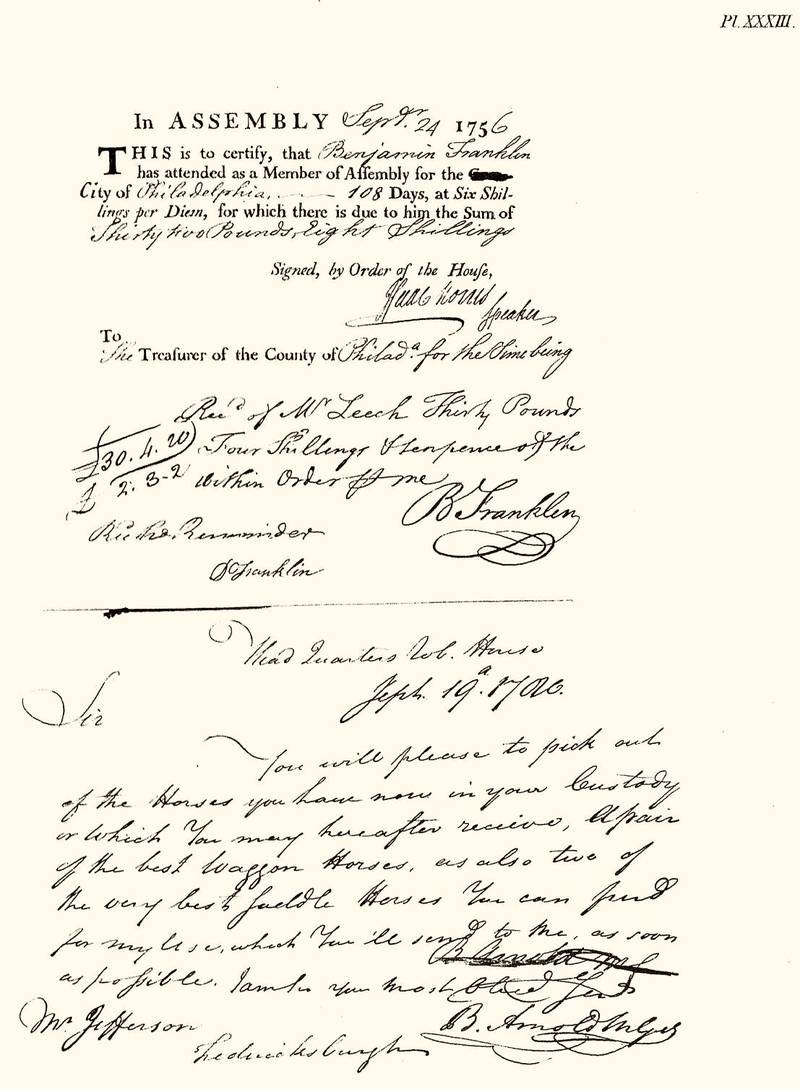 Pl. XXXIII.
In ASSEMBLY Septr. 24 1756
THIS is to certify, that Benjamin Franklin
has attended as a Member of Assembly for the
City of Philadelphia, 108 Days, at Six Shil-
lings per Diem, for which there is due to him the Sum of
Thirty two Pounds, Eight Shillings
Signed, by Order of the House,
Isaac Norris
Speaker
To
The Treasurer of the County of Philada. for the Time being
Recd of Mr Leech Thirty Pounds
£30.4.10 Four Shillings & tenpence of the
£ 2.3-2 within Order me
B Franklin
Recd Remainder
D Franklin
Head Quarters Rob. House
Sept. 19. 1780.
Sir
You will please to pick out
of the Horses you have now in your Custody
or which You may hereafter receive, A pair
of the best Waggon Horses, as also two of
the very best Saddle Horses You can find
for my Use, which You'll send to me, as soon
B Arnold
as possible. I am Sr your most Obed Serv
Mr Jefferson
B. Arnold M Gel
Fredricksburgh